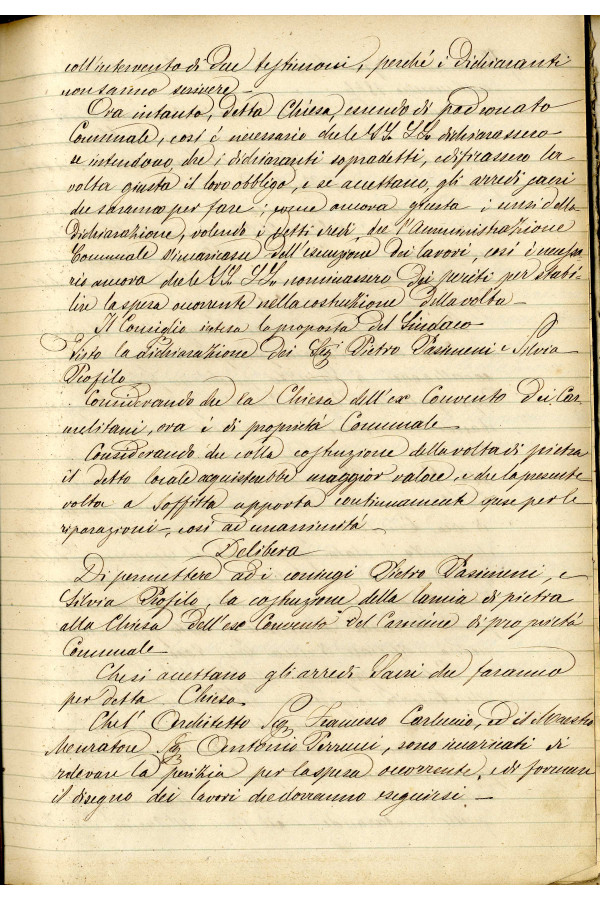 coll'intervento di due testimoni, perché i dichiaranti
non sanno scrivere
Ora intanto, detta Chiesa, essendo di padronato
Comunale, così è necessario che le SS. LL. dichiarassero
se intendono che i dichiaranti sopradetti, edificassero la
volta giusta il loro obbligo, e se accettano gli arredi sacri
che saranno per fare; come ancora giusta i sensi della
dichiarazione, volendo i detti che l'Amministrazione
Comunale s'incaricasse dell'esecuzione dei lavori, così è necessa
rio ancora che le SS. LL. nominassero dei periti per stabi-
lire la spesa occorrente nella costruzione della volta —
Il Consiglio intesa la proposta del Sindaco
Visto la dichiarazione dei Sig.i Pietro Pasimeni e Silvia
Profilo
Considerando che la Chiesa dell'ex Convento dei Car
melitani, ora è di proprietà Comunale
Considerando che colla costruzione della volta di pietra
il detto locale acquisterebbe maggior valore, e che la presente
volta a soffitta apporta continuamente spese per le
riparazioni, così ad unanimità —
Delibera
Di permettere ad i coniugi Pietro Pasimeni, e
Silvia Profilo, la costruzione della lamia di pietra
alla Chiesa dell'ex Convento del Carmine di proprietà
Comunale
Che si accettano gli arredi Sacri che faranno
per detta Chiesa
Che l'Architetto Sig. Francesco Carluccio, ed il Maestro
Muratore Sig. Antonio Perrucci, sono incaricati di
rilevare la perizia per la spesa occorrente, e di formare
il disegno dei lavori che dovranno eseguirsi —